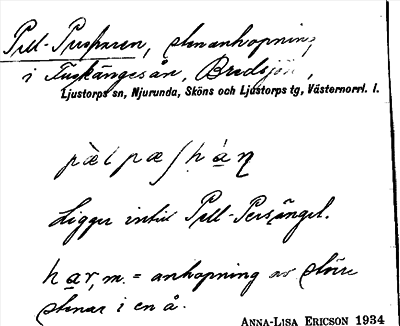 Pell-Pershar​en, stenanhopning
i Tuskängesån, Bredsjön,
Ljustorps sn, Njurunda, Sköns och Ljustorps tg, Västernorrl. l.
Ligger intill Pell-Persängel.
har, m. = anhopning av större
stenar i en å.
ANNA-LISA ERICSON 1934